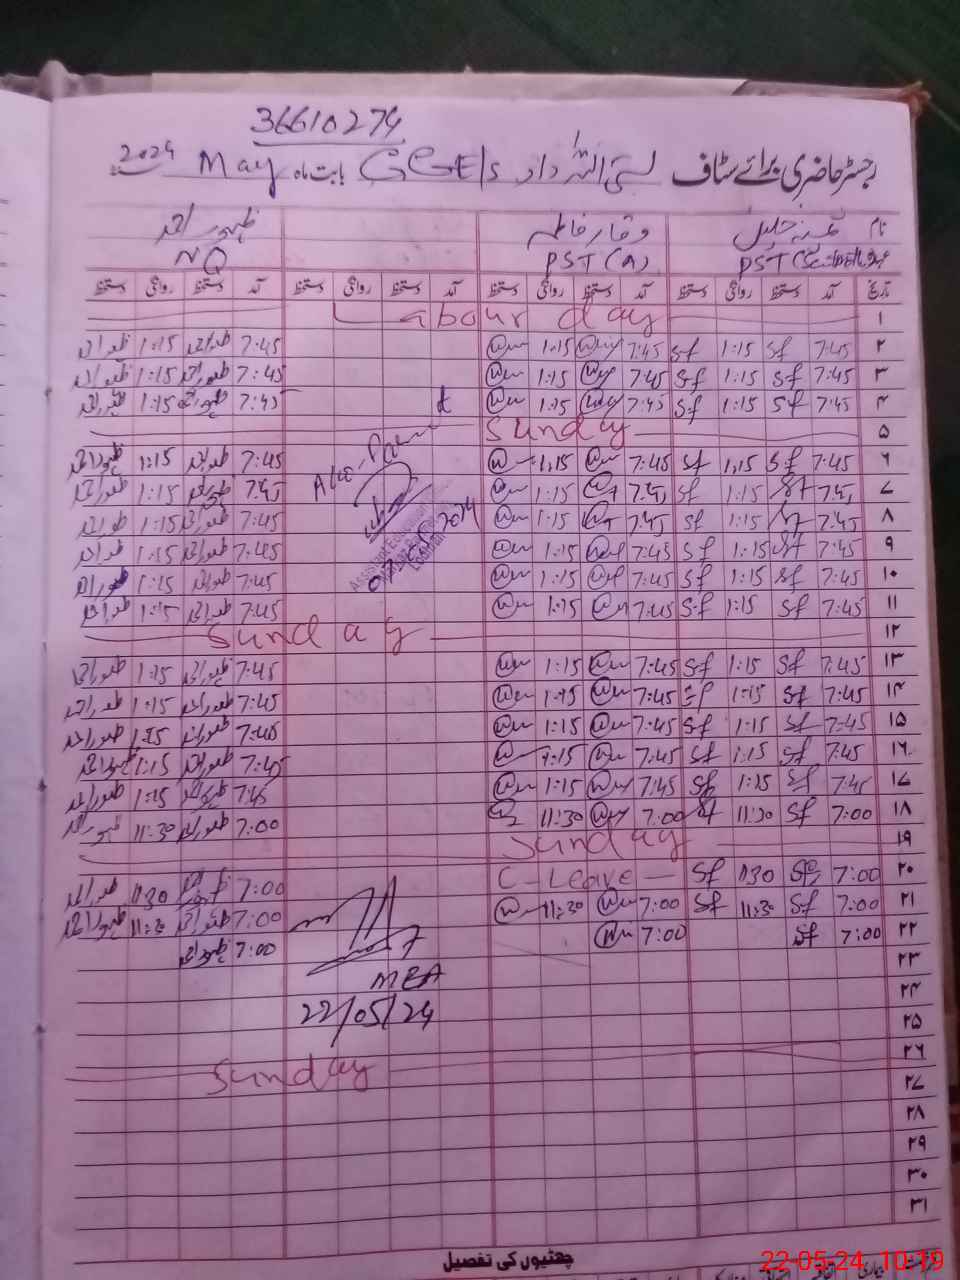 36610274
رجسٹر حاضری برائے سٹاف بستی اللہ داد GGE/s بابت ماہ May 2024
نام وقار فاطمہ ظہور احمد
عہدہ PST PST (A) NQ
تاریخ آمد دستخط روانگی دستخط آمد دستخط روانگی دستخط آمد دستخط روانگی دستخط آمد دستخط روانگی دستخط
۱ Labour day
۲ 7:45 Sf 1:15 Sf 7:45 1:15 7:45 ظہور احمد 1:15 ظہور احمد
۳ 7:45 Sf 1:15 Sf 7:45 1:15 7:45 ظہور احمد 1:15 ظہور احمد
۴ 7:45 Sf 1:15 Sf 7:45 1:15 7:45 ظہور احمد 1:15 ظہور احمد
۵ Sunday
۶ 7:45 Sf 1:15 Sf 7:45 1:15 7:45 ظہور احمد 1:15 ظہور احمد
۷ 7:45 Sf 1:15 Sf 7:45 1:15 7:45 ظہور احمد 1:15 ظہور احمد
۸ 7:45 Sf 1:15 Sf 7:45 1:15 7:45 ظہور احمد 1:15 ظہور احمد
۹ 7:45 Sf 1:15 Sf 7:45 1:15 7:45 ظہور احمد 1:15 ظہور احمد
۱۰ 7:45 Sf 1:15 Sf 7:45 1:15 7:45 ظہور احمد 1:15 ظہور احمد
۱۱ 7:45 Sf 1:15 Sf 7:45 1:15 7:45 ظہور احمد 1:15 ظہور احمد
۱۲ Sunday
۱۳ 7:45 Sf 1:15 Sf 7:45 1:15 7:45 ظہور احمد 1:15 ظہور احمد
۱۴ 7:45 Sf 1:15 Sf 7:45 1:15 7:45 ظہور احمد 1:15 ظہور احمد
۱۵ 7:45 Sf 1:15 Sf 7:45 1:15 7:45 ظہور احمد 1:15 ظہور احمد
۱۶ 7:45 Sf 1:15 Sf 7:45 1:15 7:45 ظہور احمد 1:15 ظہور احمد
۱۷ 7:45 Sf 1:15 Sf 7:45 1:15 7:45 ظہور احمد 1:15 ظہور احمد
۱۸ 7:00 Sf 11:30 Sf 7:00 11:30 7:00 ظہور احمد 11:30 ظہور احمد
۱۹ Sunday
۲۰ 7:00 Sf 1130 Sf C-Leave 7:00 ظہور احمد 1130 ظہور احمد
۲۱ 7:00 Sf 11:30 Sf 7:00 11:30 7:00 ظہور احمد 11:30 ظہور احمد
۲۲ 7:00 Sf 7:00 7:00 ظہور احمد
۲۳
MEA
۲۴
22/05/24
۲۵
۲۶ Sunday
۲۷
۲۸
۲۹
۳۰
۳۱
چھٹیوں کی تفصیل
22-05-24 10:19